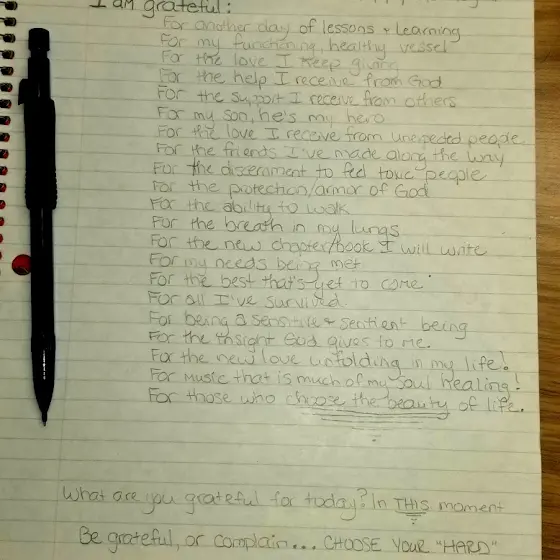 I am grateful:
For another day of lessons + learning
For my functioning, healthy vessel
For the love I keep giving
For the help I receive from God
For the support I receive from others
For my son, he's my hero
For the love I receive from unexpected people
For the friends I've made along the way
For the discernment to feel toxic people
For the protection/armor of God
For the ability to walk
For the breath in my lungs
For the new chapter/book I will write
For my needs being met
For the best that's yet to come
For all I've survived.
For being a sensitive + sentient being
For the insight God gives to me.
For the new love unfolding in my life!
For music that is much of my soul healing!
For those who choose the beauty of life.
What are you grateful for today? In THIS moment
Be grateful, or complain... CHOOSE YOUR "HARD"